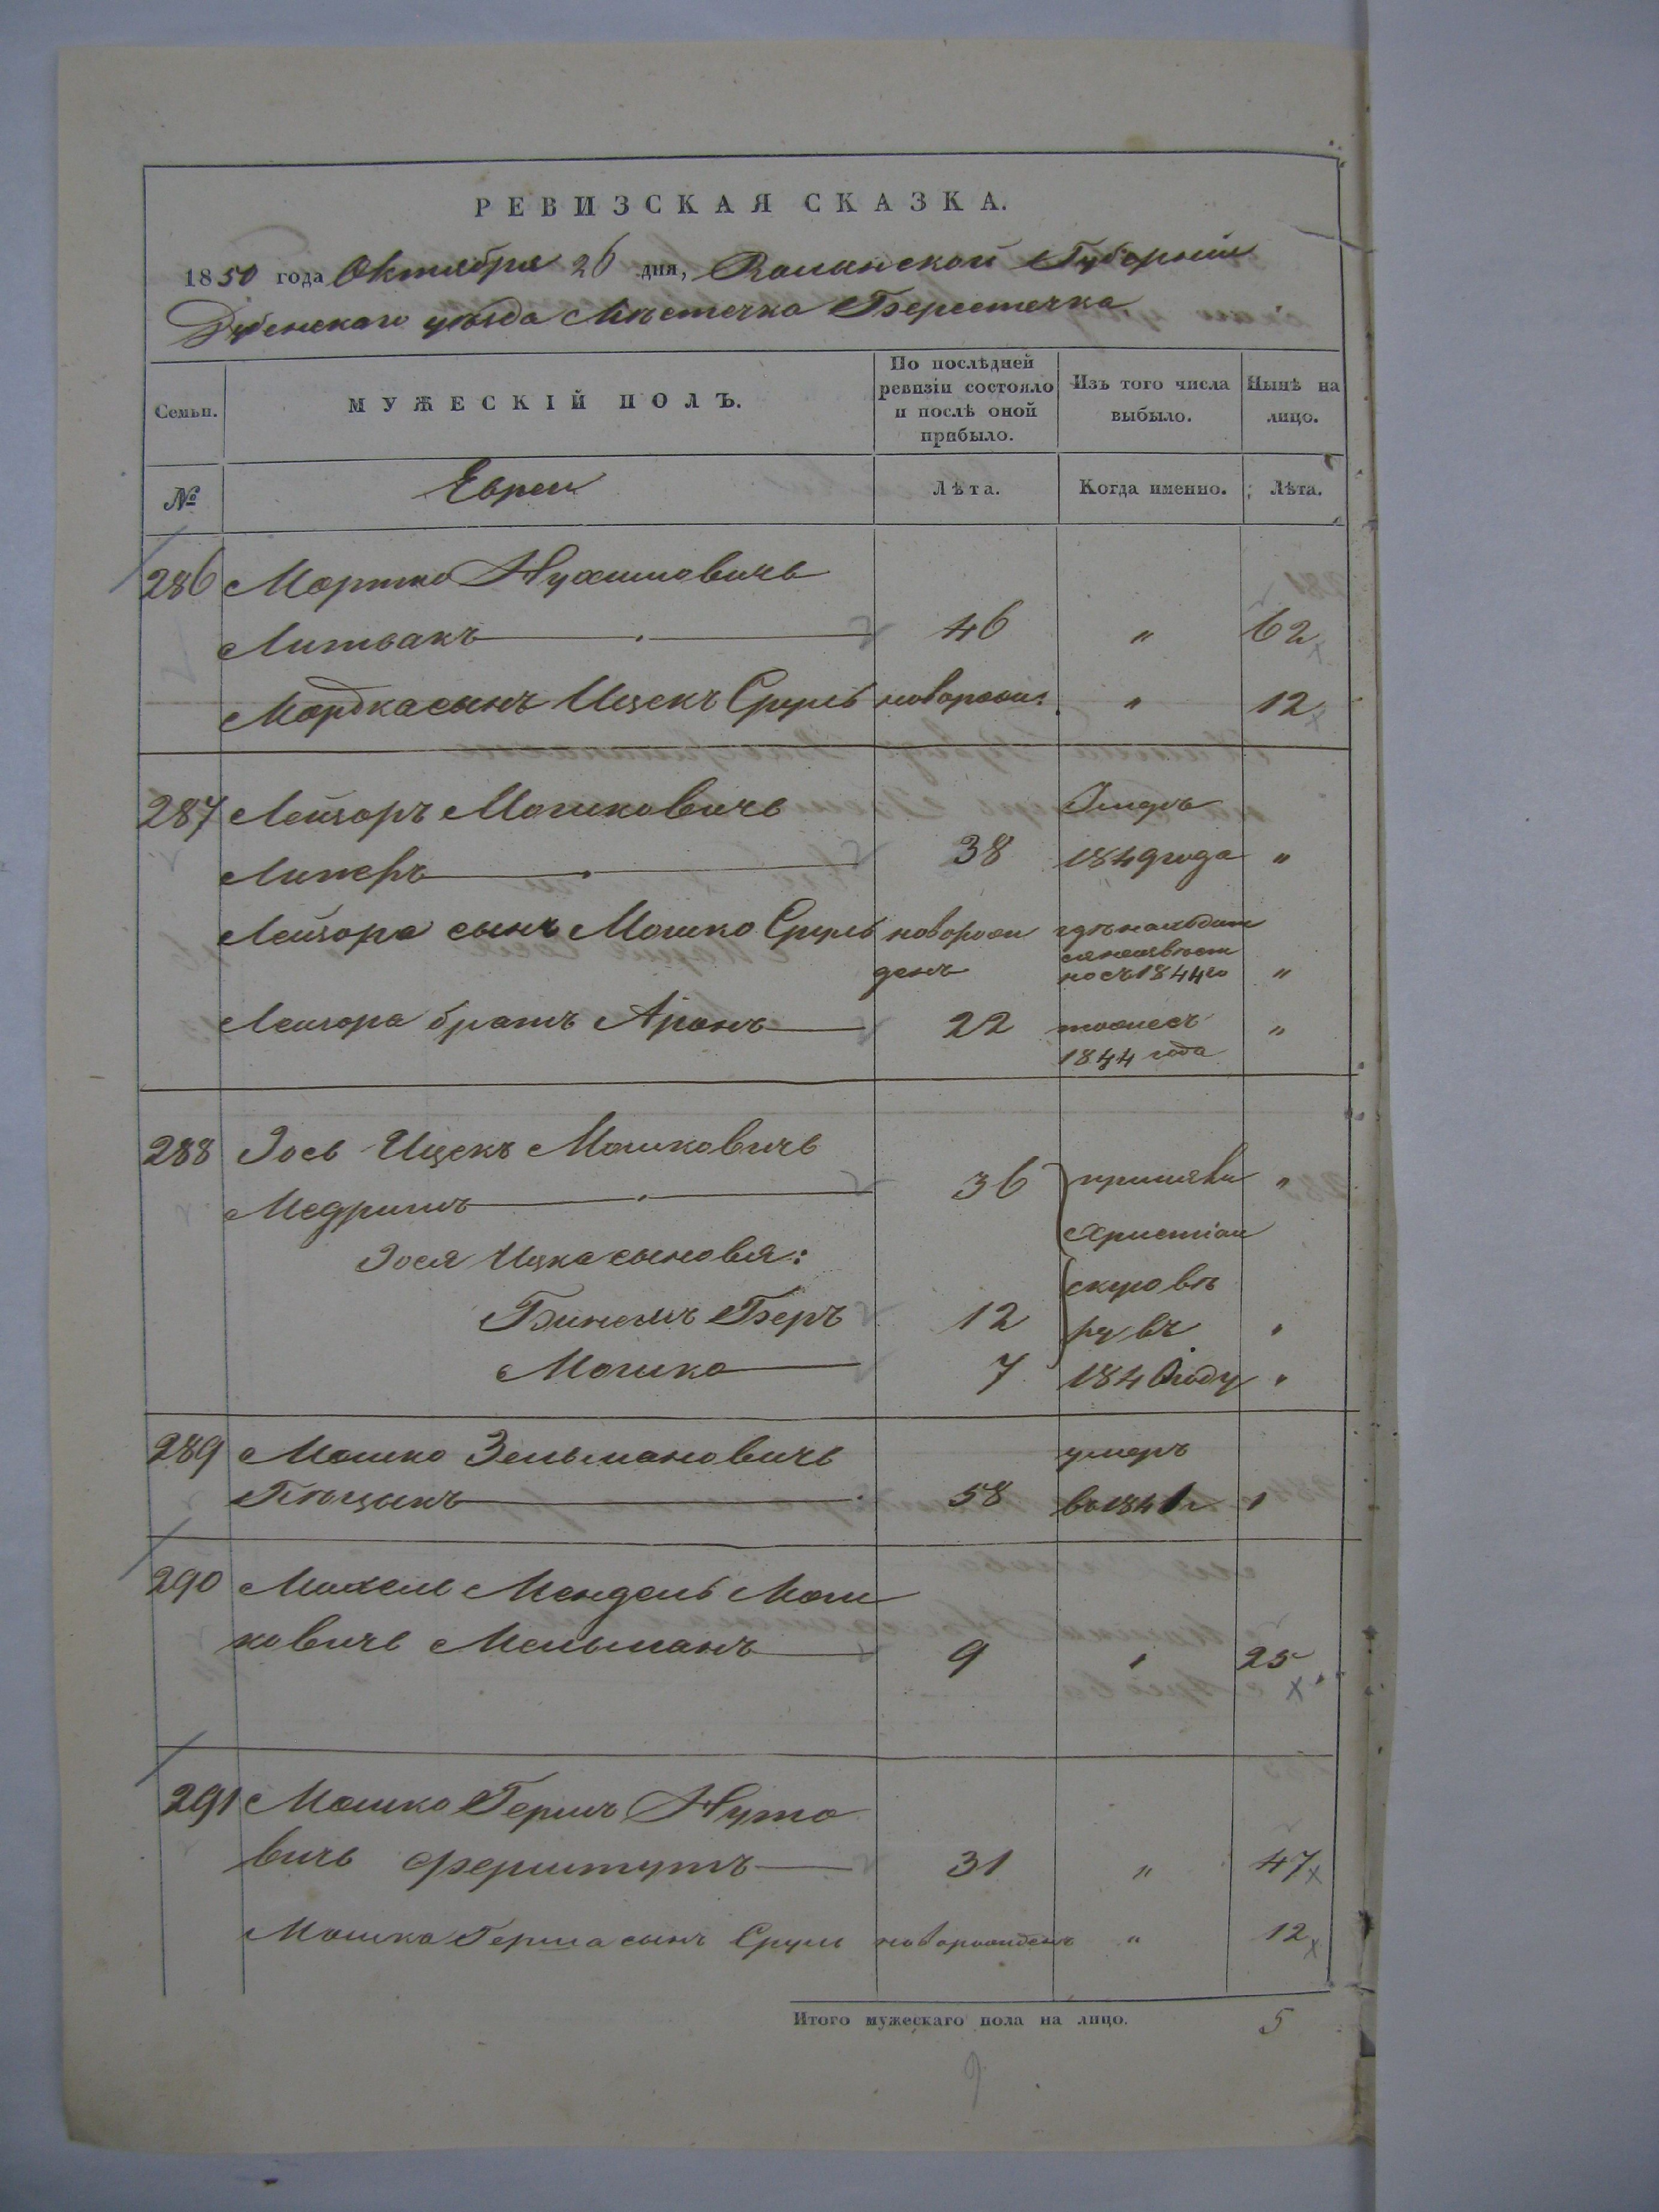 РЕВИЗСКАЯ СКАЗКА.
1850 года Октября 26 дня, Волынской Губерніи
Дубенскаго уѣзда Мѣстечка Берестечка
Семьи. МУЖЕСКІЙ ПОЛЪ. По послѣдней ревизіи состояло и послѣ оной прибыло. Изъ того числа выбыло. Нынѣ на лицо.
№ Евреи Лѣта. Когда именно. Лѣта.
286 Мортко Нухимовичъ
Литвакъ 46 " 62
Мордка сынъ Ицекъ Сруль новорож: " 12
287 Лейзоръ Мошковичь Умеръ
Липеръ 38 1849 года "
Лейзора сынъ Мошко Сруль новорож гдѣ находит
ся неизвѣст
денъ но съ 1844 го "
Лейзора братъ Аронъ 22 тоже съ "
1844 года
288 Іось Ицекъ Мошковичь
Медришъ 36 приняли "
Христіан
Іося Ицка сыновья:
скую вѣ
Бинемъ Беръ 12 ру въ "
Мошко 7 1840 году "
289 Мошко Зельмановичь умеръ
58 в 1841 г "
290 Михель Мендель Мош
ковичь Мельманъ 9 " 25
291 Мошко Герш Нуто
вичь Ферштутъ 31 " 47
Мошка Герша сынъ Сруль новорожденъ " 12
Итого мужескаго пола на лицо. 5